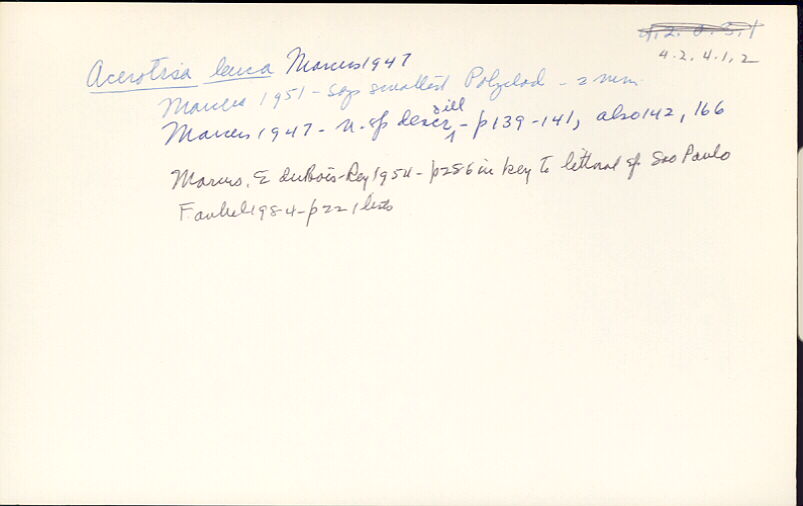 4.2.0.5.1
4.2.4.1.2
Acerotisa leuca Marcus 1947
Marcus 1951 - says smallest Polyclad - 2 mm.
Marcus 1947 - n. sp descr, ill - p139-141, also 142, 166
Marcus, E duBois-Rey 1954 - p286 in key to littoral sp Sao Paulo
Faubel 1984 - p221 lists